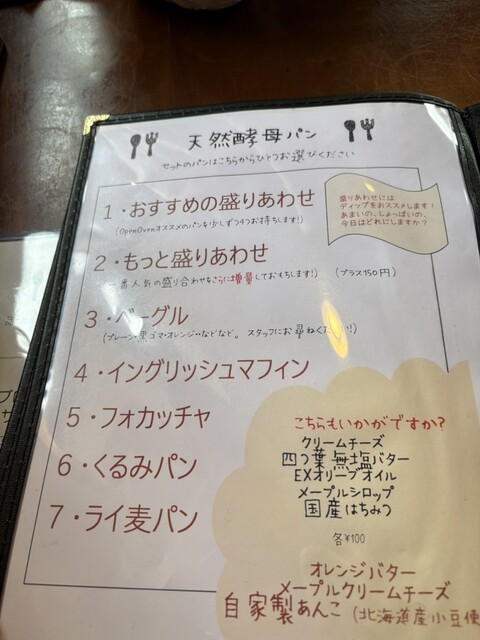 天然酵母パン
セットのパンはこちらからひとつお選びください
1・おすすめの盛りあわせ
(OpenOvenオススメのパンを少しずつ4つお持ちします!)
盛りあわせには
ディップをおススメします!
あまいの、しょっぱいの、
今日はどれにしますか?
2・もっと盛りあわせ
番人気の盛り合わせをさらに増量しておもちします!) (プラス150円)
3・ベーグル
(プレーン・黒ゴマ・オレンジ・・などなど。スタッフにお尋ねくだ!!)
4・イングリッシュマフィン
5・フォカッチャ
6・くるみパン
7・ライ麦パン
こちらもいかがですか?
クリームチーズ
四つ葉無塩バター
EXオリーブオイル
メープルシロップ
国産はちみつ
各¥100
オレンジバター
メープルクリームチーズ
自家製あんこ(北海道産小豆使